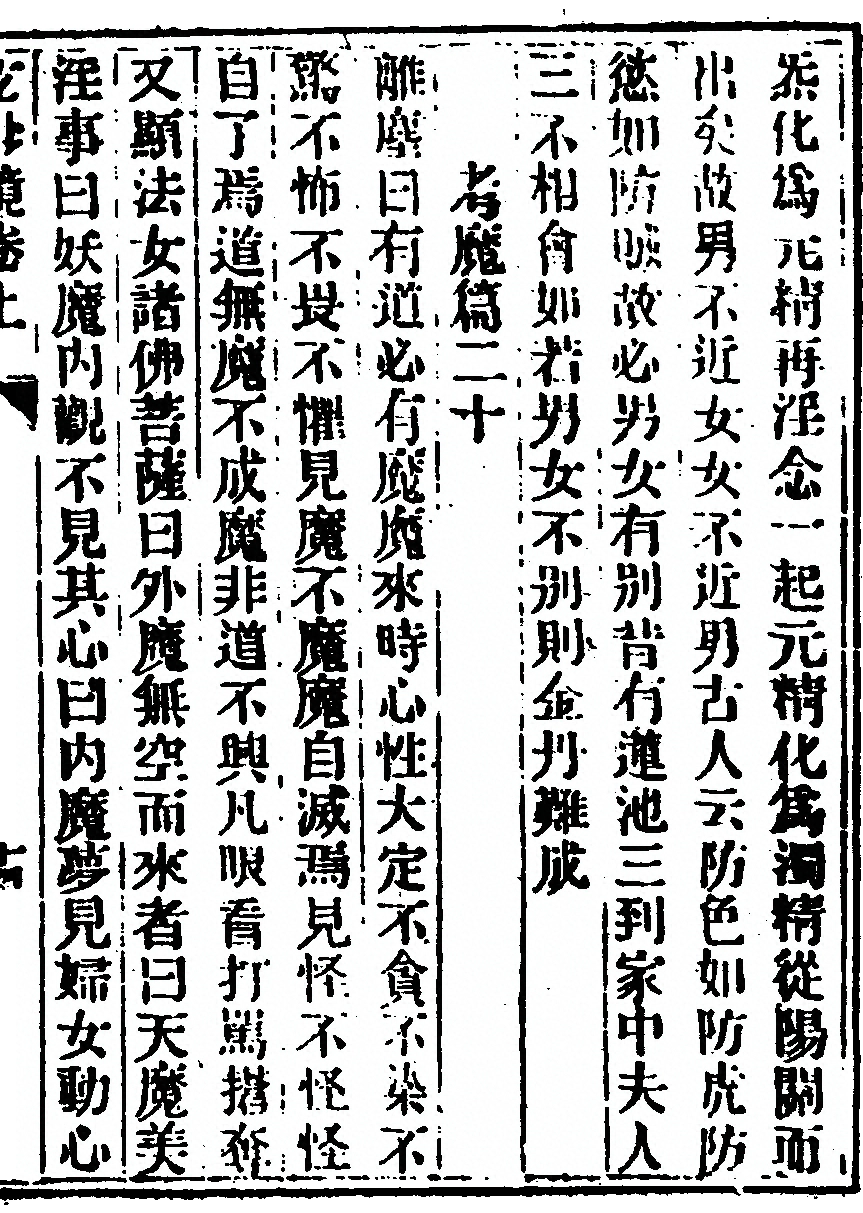 炁化爲元精再淫念一起元精化爲濁精從陽關而
出矣故男不近女女不近男古人云防色如防虎防
慾如防賊故必男女有別背有蓮池三到家中夫人
三不相會如若男女不別則金丹難成
考魔篇二十
離塵曰有道必有魔魔來時心性大定不貪不染不
驚不怖不畏不懼見魔不魔魔自滅焉見怪不怪怪
自了焉道無魔不成魔非道不興凡眼看打罵搶奪
又顯法女諸佛菩薩曰外魔無空而來者曰天魔美
淫事曰妖魔内觀不見其心曰内魔夢見婦女動心
境卷上